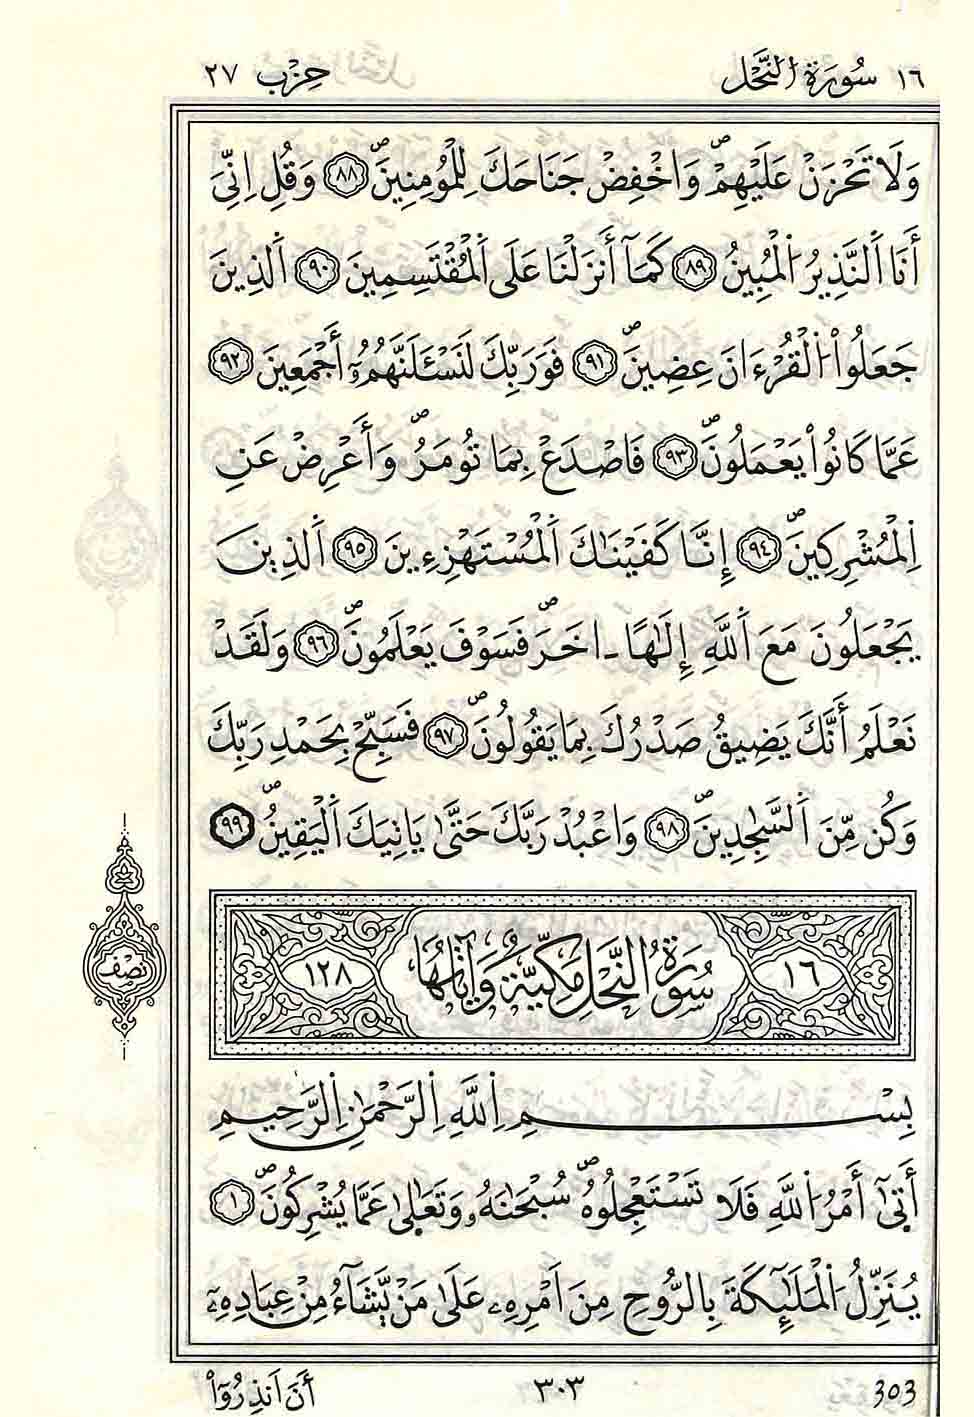 ١٦ سُورَةُ النَّحْل حِزْب ٢٧
وَلَا تَحْزَنْ عَلَيْهِمْۖ وَاخْفِضْ جَنَاحَكَ لِلْمُومِنِينَۖ ٨٨ وَقُلِ اِنِّيَ
أَنَا اَ۬لنَّذِيرُ اُ۬لْمُبِينُ ٨٩ كَمَآ أَنزَلْنَا عَلَي اَ۬لْمُقْتَسِمِينَ ٩٠ اَ۬لذِينَ
جَعَلُواْ اُ۬لْقُرْءَانَ عِضِينَۖ ٩١ فَوَرَبِّكَ لَنَسْـَٔلَنَّهُمُۥٓ أَجْمَعِينَ ٩٢
عَمَّا كَانُواْ يَعْمَلُونَۖ ٩٣ فَاصْدَعْ بِمَا تُومَرُۖ وَأَعْرِضْ عَنِ
اِ۬لْمُشْرِكِينَۖ ٩٤ إِنَّا كَفَيْنَٰكَ اَ۬لْمُسْتَهْزِءِينَ ٩٥ اَ۬لذِينَ
يَجْعَلُونَ مَعَ اَ۬للَّهِ إِلَٰهاً ـ اخَرَۖ فَسَوْفَ يَعْلَمُونَۖ ٩٦ وَلَقَدْ
نَعْلَمُ أَنَّكَ يَضِيقُ صَدْرُكَ بِمَا يَقُولُونَۖ ٩٧ فَسَبِّحْ بِحَمْدِ رَبِّكَ
وَكُن مِّنَ اَ۬لسَّٰجِدِينَۖ ٩٨ وَاعْبُدْ رَبَّكَ حَتَّىٰ يَاتِيَكَ اَ۬لْيَقِينُۖ ٩٩
نصف
١٦ سُورَةُ النَّحْلِ مَكِّيَّةٌ وَآيَاتُهَا ١٢٨
بِسْمِ اِ۬للَّهِ اِ۬لرَّحْمَٰنِ اِ۬لرَّحِيمِ
أَتٜىٰٓ أَمْرُ اُ۬للَّهِ فَلَا تَسْتَعْجِلُوهُۖ سُبْحَٰنَهُۥ وَتَعَٰلٜىٰ عَمَّا يُشْرِكُونَۖ ١
يُنَزِّلُ اُ۬لْمَلَٰٓئِكَةَ بِالرُّوحِ مِنَ اَمْرِهِۦ عَلَىٰ مَنْ يَّشَآءُ مِنْ عِبَادِهِۦٓ
303 ٣٠٣ أَنَ اَنذِرُوٓاْ